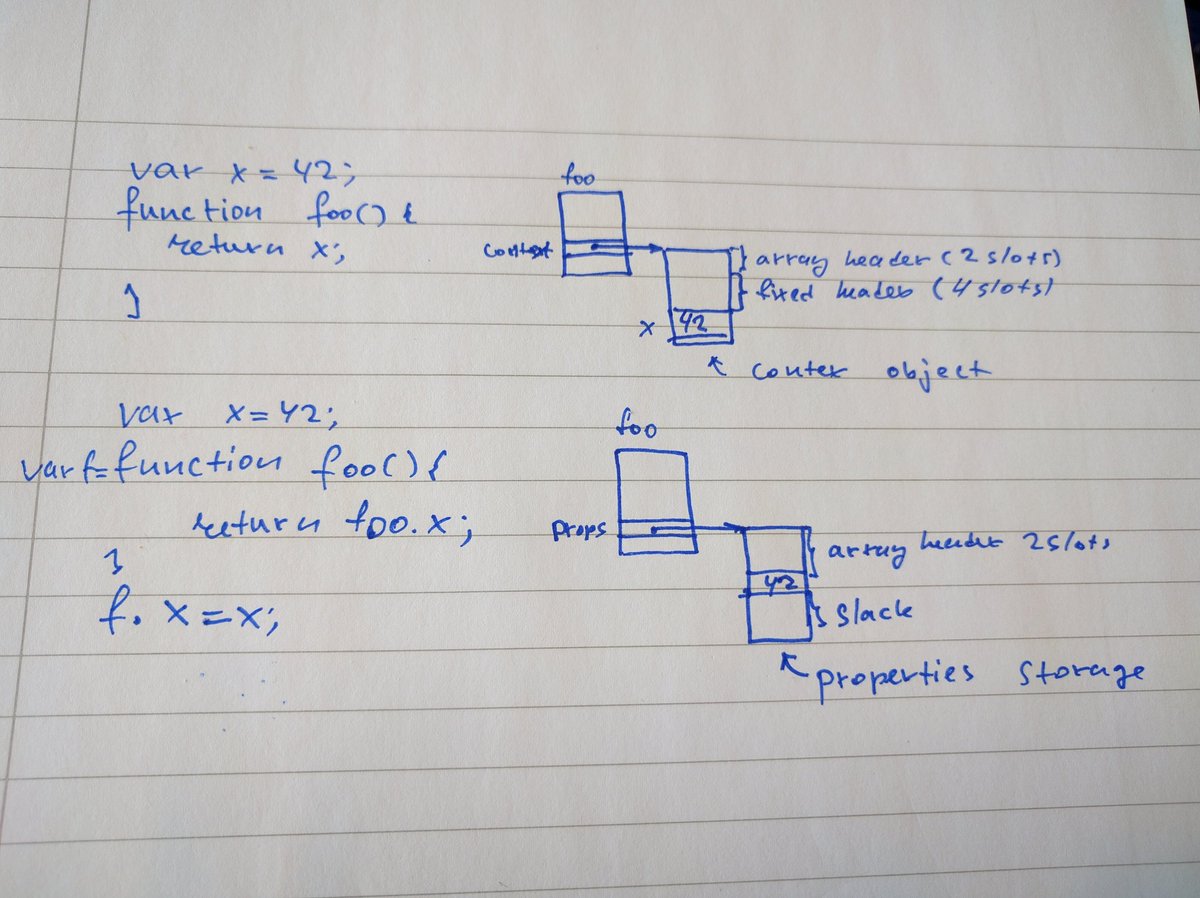 var x = 42;
function foo() {
return x;
}
foo
context
array header (2 slots)
fixed header (4 slots)
x 42
contex object
var x = 42;
var f = function foo() {
return foo.x;
}
f. x = x;
foo
props
array header 2 slots
42
slack
properties storage